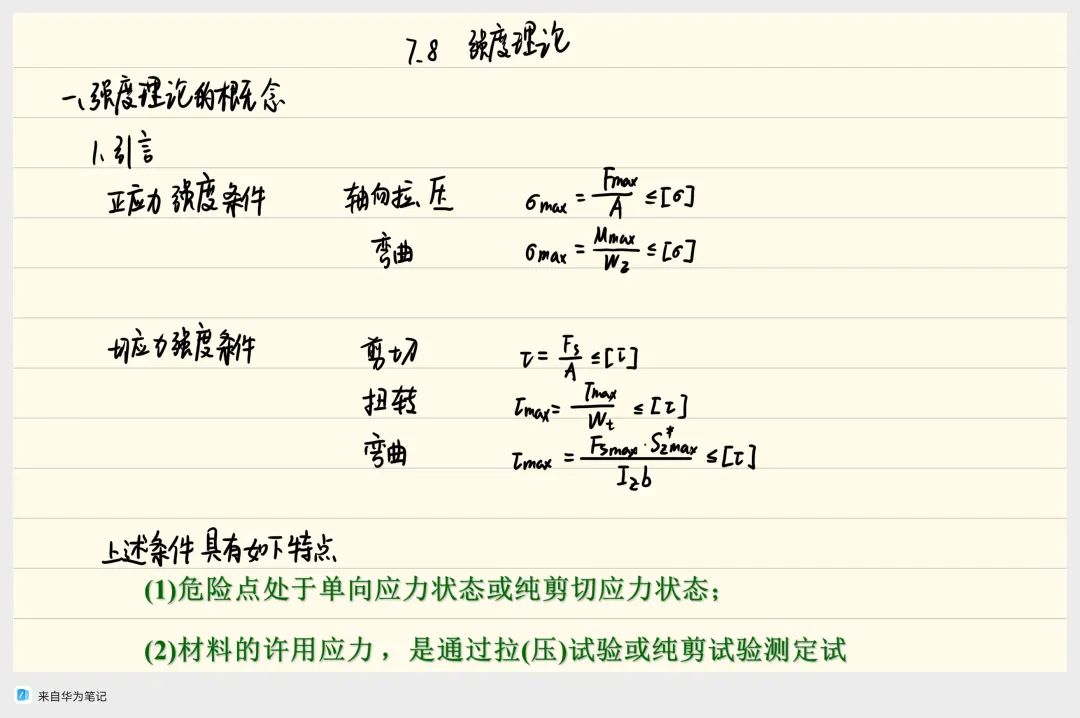 7.8 强度理论
一、强度理论的概念
1、引言
正应力强度条件 轴向拉、压 σmax = Fmax/A ≤ [σ]
弯曲 σmax = Mmax/Wz ≤ [σ]
切应力强度条件 剪切 τ = Fs/A ≤ [τ]
扭转 τmax = Tmax/Wt ≤ [τ]
弯曲 τmax = Fsmax · S*zmax / Izb ≤ [τ]
上述条件具有如下特点
(1)危险点处于单向应力状态或纯剪切应力状态；
(2)材料的许用应力，是通过拉(压)试验或纯剪试验测定试
来自华为笔记